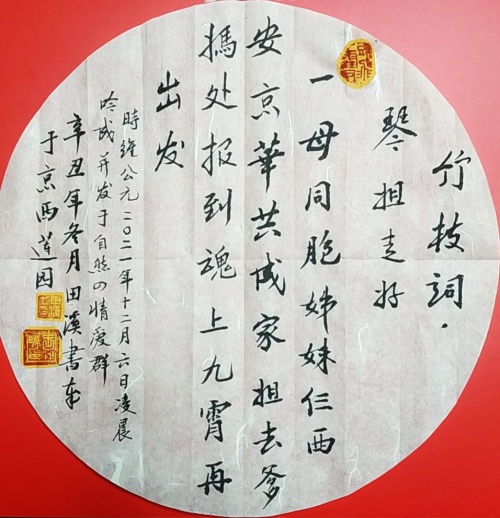 竹枝詞·
琴姐走好
一母同胞姊妹仨西
安京華共成家姐去爹
媽处报到魂上九霄再
出发
時維公元二〇二一年十二月六日凌晨
吟成并发于自然の情爱群
辛丑年冬月田溪書奉
于京西莲园